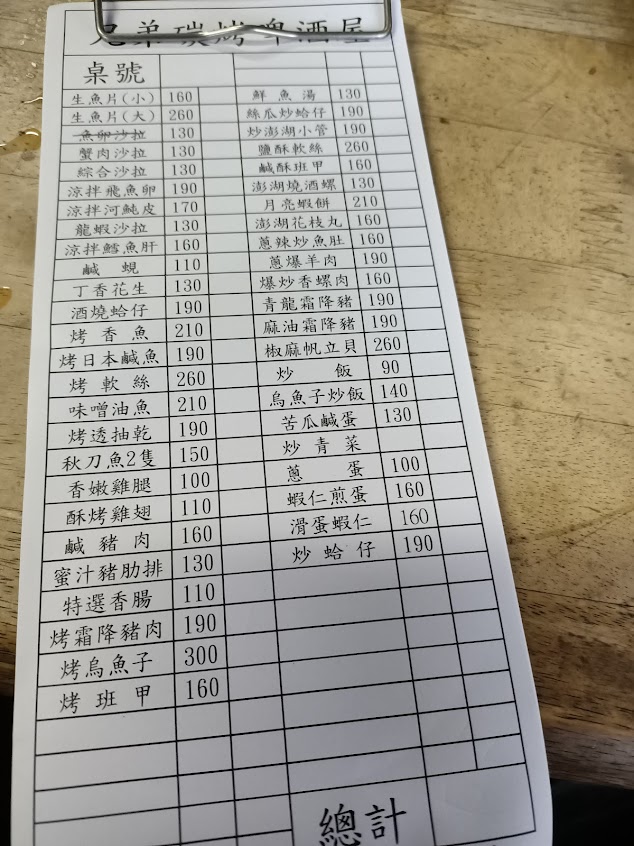 兄弟碳烤啤酒屋
桌號
生魚片(小) 160 鮮魚湯 130
生魚片(大) 260 絲瓜炒蛤仔 190
魚卵沙拉 130 炒澎湖小管 190
蟹肉沙拉 130 鹽酥軟絲 260
綜合沙拉 130 鹹酥班甲 160
涼拌飛魚卵 190 澎湖燒酒螺 130
涼拌河魨皮 170 月亮蝦餅 210
龍蝦沙拉 130 澎湖花枝丸 160
涼拌鱈魚肝 160 蔥辣炒魚肚 160
鹹蜆 110 蔥爆羊肉 190
丁香花生 130 爆炒香螺肉 160
酒燒蛤仔 190 青龍霜降豬 190
烤香魚 210 麻油霜降豬 190
烤日本鹹魚 190 椒麻帆立貝 260
烤軟絲 260 炒飯 90
味噌油魚 210 烏魚子炒飯 140
烤透抽乾 190 苦瓜鹹蛋 130
秋刀魚2隻 150 炒青菜
香嫩雞腿 100 蔥蛋 100
酥烤雞翅 110 蝦仁煎蛋 160
鹹豬肉 160 滑蛋蝦仁 160
蜜汁豬肋排 130 炒蛤仔 190
特選香腸 110
烤霜降豬肉 190
烤烏魚子 300
烤班甲 160
總計